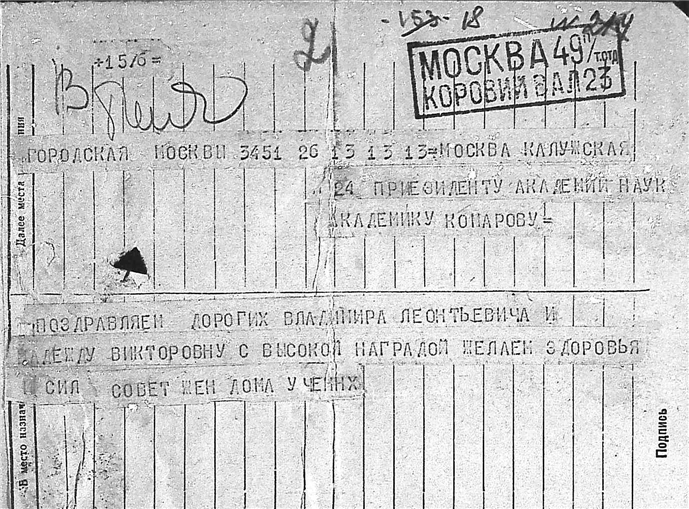 -153-18
2
÷1576=
МОСКВА 49 П/Т.ОТД
КОРОВИЙ ВАЛ 23
ГОРОДСКАЯ МОСКВЫ 3451 26 13 13 13=МОСКВА КАЛУЖСКАЯ
24 ПРИЕЗИДЕНТУ АКАДЕМИЙ НАУК
АКАДЕМИКУ КОМАРОВУ=
Далее места
ПОЗДРАВЛЯЕМ ДОРОГИХ ВЛАДИМИРА ЛЕОНТЬЕВИЧА И
НАДЕЖДУ ВИКТОРОВНУ С ВЫСОКОЙ НАГРАДОЙ ЖЕЛАЕМ ЗДОРОВЬЯ
И СИЛ СОВЕТ ЖЕН ДОМА УЧЕННХ
В место назнач
Подпись